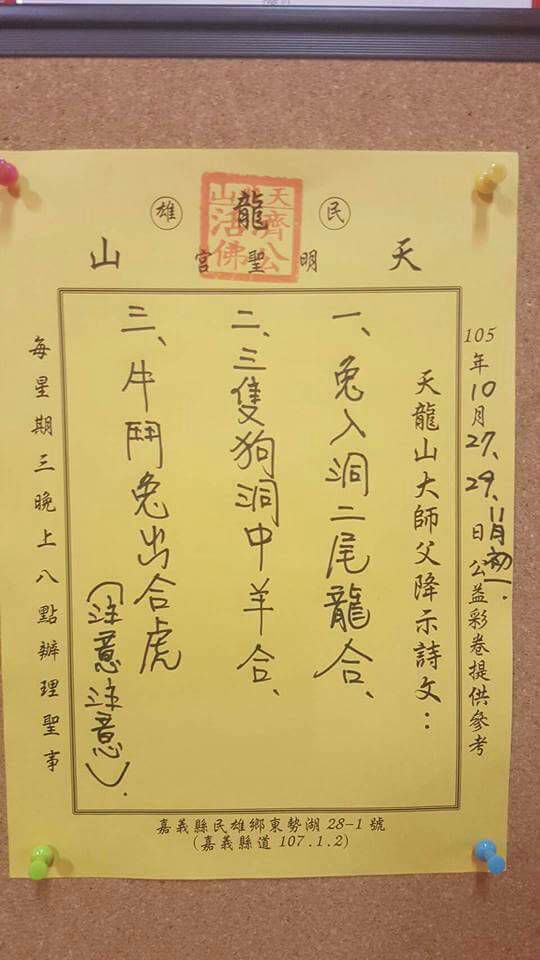 民龍雄
天明聖宮山
天山濟公活佛
105年10月27.29.11月初一.日公益彩卷提供參考
天龍山大師父降示詩文：
一、兔入洞二尾龍合、
二、三隻狗洞中羊合、
三、牛鬥兔出合虎
(注意注意).
每星期三晚上八點辦理聖事
嘉義縣民雄鄉東勢湖28-1號
(嘉義縣道107.1.2)